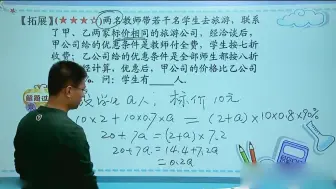 【拓展】(★★★☆)两名教师带若干名学生去旅游，联系
了甲、乙两家标价相同的旅游公司，经洽谈后，
甲公司给的优惠条件是教师付全费，学生按七折
收费；乙公司给的优惠条件是全部师生都按八折
经计算，优惠后，甲公司的价格比乙公司
问：学生有____人。
设学生a人，标价10元
10×2+10×0.7×a=(2+a)×10×0.8×90%
20+7a=(2+a)×7.2
20+7a=14.4+7.2a
=0.2a